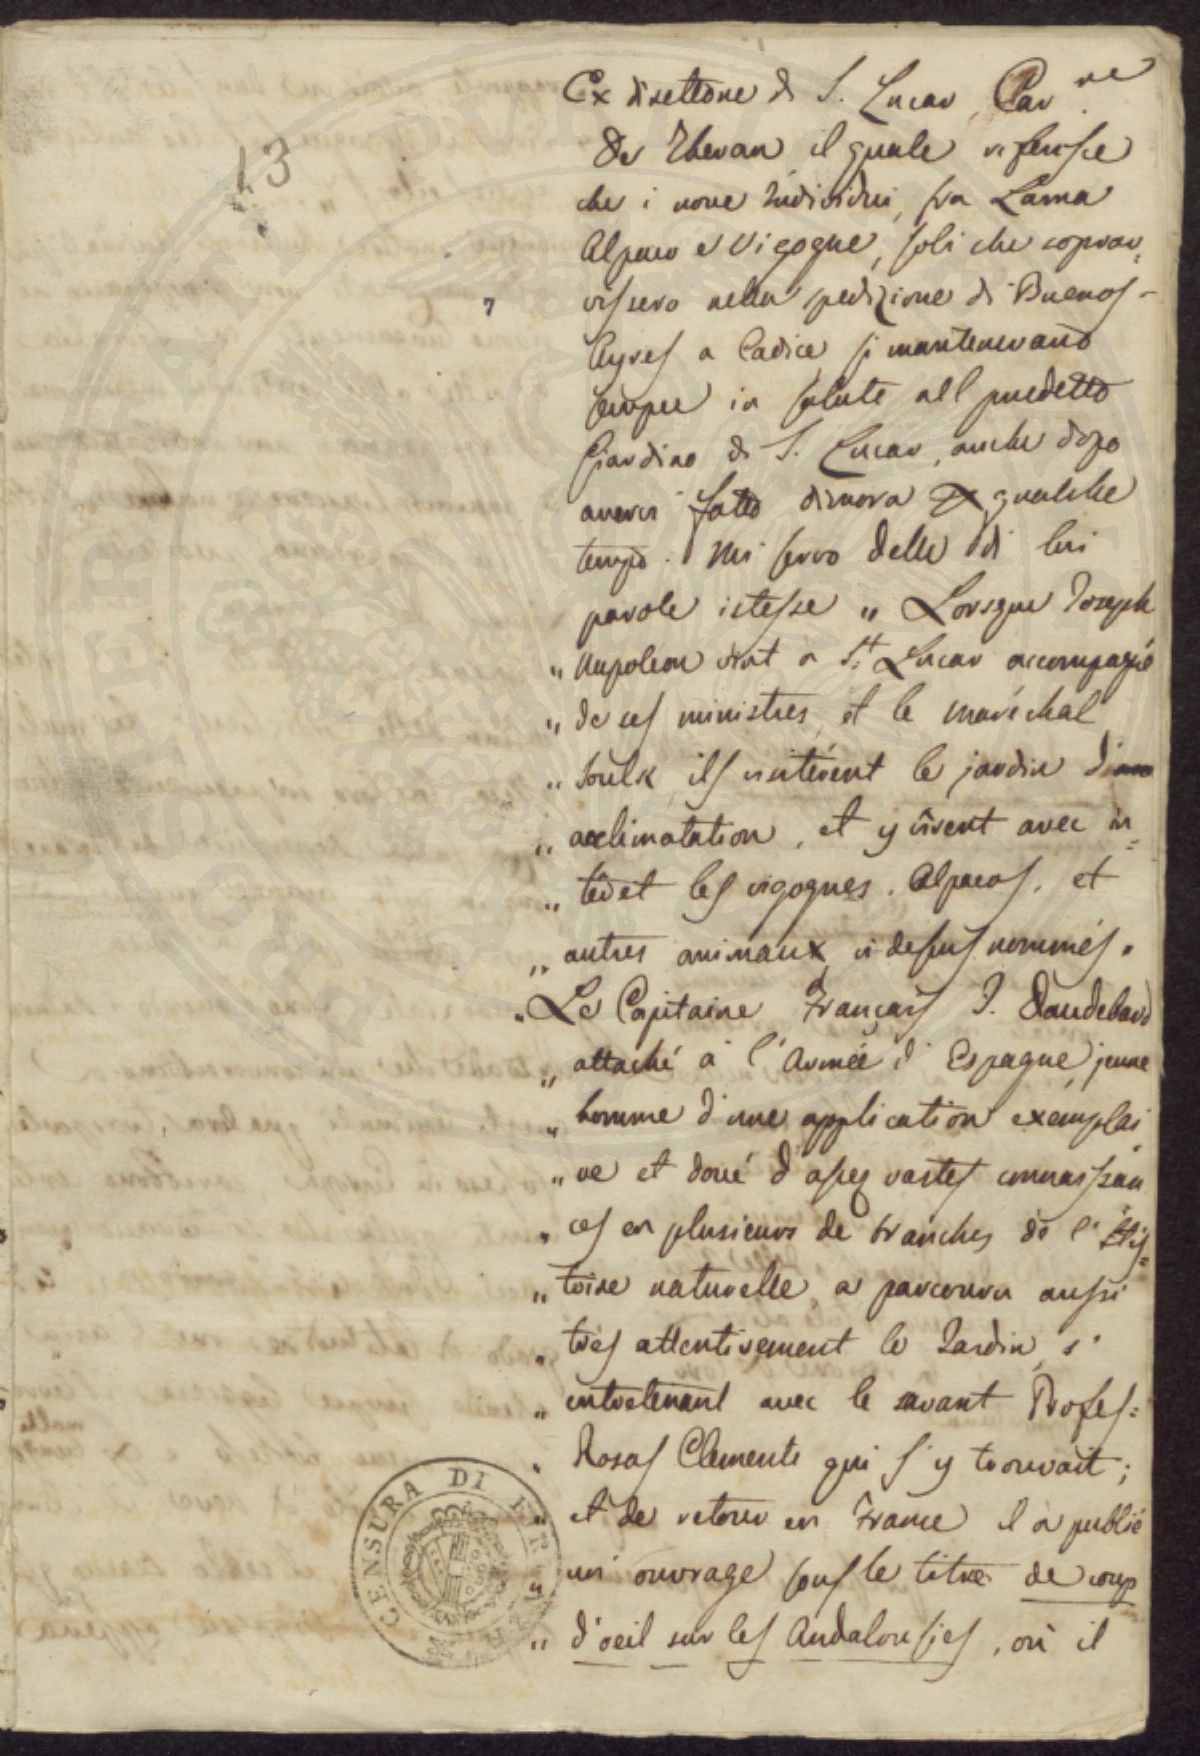 13
Ex direttore di S. Lucar, Cav.re
De Theran il quale riferisce
che i nove individui, fra Lama
Alpaco e Vigogne, soli che soprav=
vissero nella spedizione di Buenos-
Ayres a Cadice si mantenevano
sempre in salute nell predetto
Giardino di S. Lucar, anche dopo
avervi fatto dimora qualche
tempo. Mi servo delle di lui
parole istesse „ Lorsque Joseph
„ Napoleon vint a St. Lucar accompagné
„ de ses ministres, et le maréchal
„ Soult, ils visitèrent le jardin d'
„ acclimatation, et y virent avec in=
„ téret les vigognes, Alpacos, et
„ autres animaux, ci dessus nommés.
„ Le Capitaine Français J. Daudebard
„ attaché à l'Armée d'Espagne, jeune
„ homme d'une application exemplai
„ re et doué d'assez vastes connaissan
„ ces en plusieurs de branches de l'His=
„ toire naturelle, a parcouru aussi
„ très attentivement le Jardin, s'
„ entretenant avec le savant Profes=
„ Rosas Clemente qui s'y trouvait;
„ et de retour en France il a publié
„ un ouvrage sous le titre de coup
„ d'oeil sur les Andalousies, où il
CENSURA DI